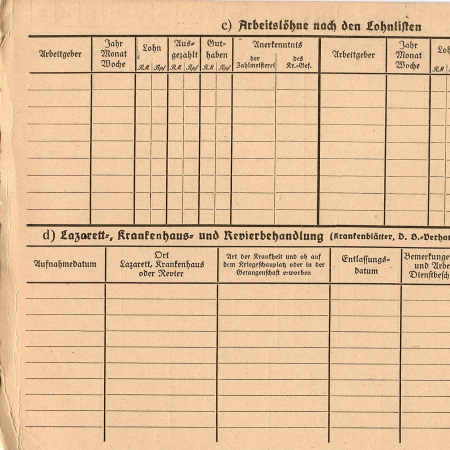 c) Arbeitslöhne nach den Lohnlisten
Arbeitgeber
Jahr
Monat
Woche
Lohn
RM Rpf
Aus-
gezahlt
RM Rpf
Gut-
haben
RM Rpf
Anerkenntnis
der
Zahlmeisterei
des
Kr.-Gef.
Arbeitgeber
Jahr
Monat
Woche
Loh
RM
d) Lazarett-, Krankenhaus- und Revierbehandlung (Krankenblätter, D. B.-Verhan
Aufnahmedatum
Ort
Lazarett, Krankenhaus
oder Revier
Art der Krankheit und ob auf
dem Kriegsschauplatz oder in der
Gefangenschaft erworben
Entlassungs-
datum
Bemerkungen
und Arbe
Dienstbesch